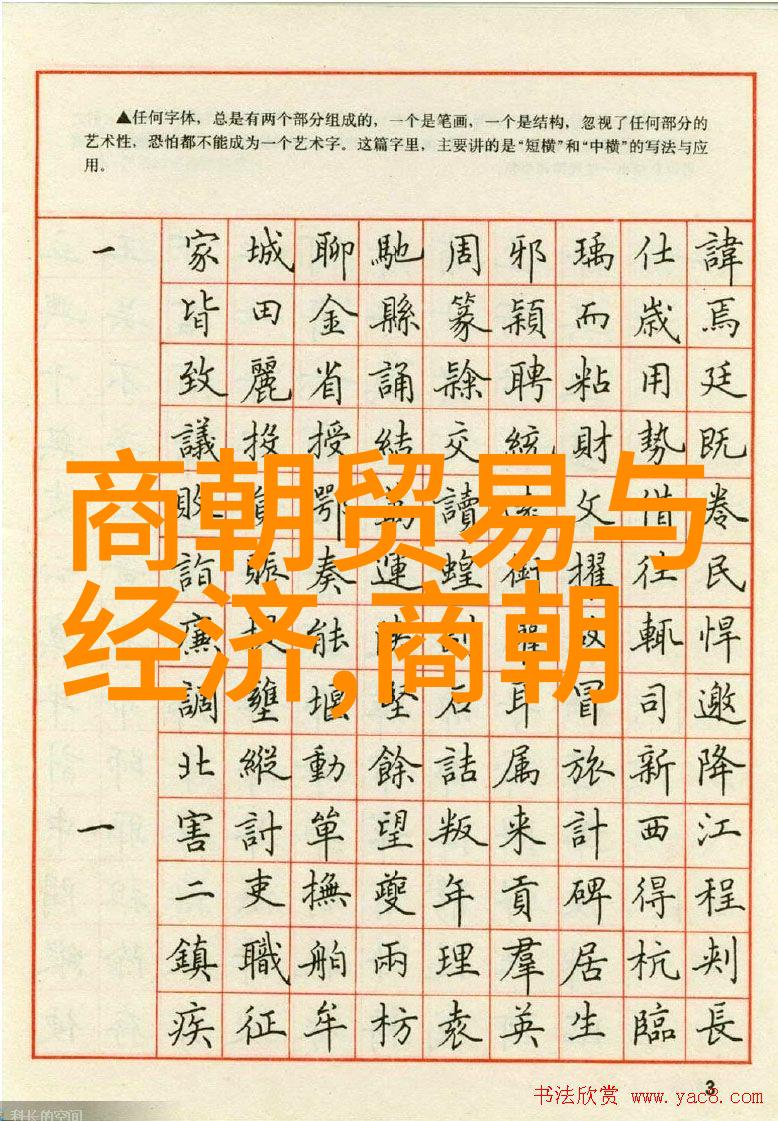 ▲任何字体，总是有两个部分组成的，一个是笔画，一个是结构，忽视了任何部分的
艺术性，恐怕都不能成为一个艺术字。这篇字里，主要讲的是“短横”和“中横”的写法与应
用。
一 家 城 聊 馳 周 邪 瑀 仕 諱
皆 田 金 縣 篆 穎 而 歲 焉
致 麗 省 誦 隸 聘 粘 用 廷
議 投 授 結 交 統 財 勢 既
鄂 讀 文 借
商朝贸易与
詣 賑 奏 連 蝗 衝 擢 往 民
经济,商朝
廉 能 輒 悍
調 壅 堰 石 耳 冒 司 邀
北 縱 動 餘 詰 属 旅 新 降
一 害 討 單 望 叛 来 計 西 江
二 吏 撫 夔 年 貢 碑 得 程
鎮 職 舶 兩 理 羣 居 杭 刺
疾 征 牟 枋 袁 英 生 臨 長
3
书法欣赏 www.yac8.com
科长的空间